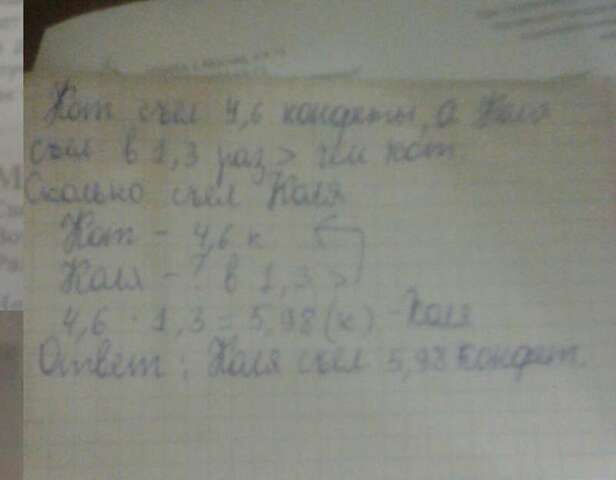 Кот съел 4,6 конфеты, а Коля
съел в 1,3 раз > чем кот.
Сколько съел Коля
Кот - 4,6 к
Коля - ? в 1,3 >
4,6 · 1,3 = 5,98 (к) - Коля
Ответ: Коля съел 5,98 конфет.